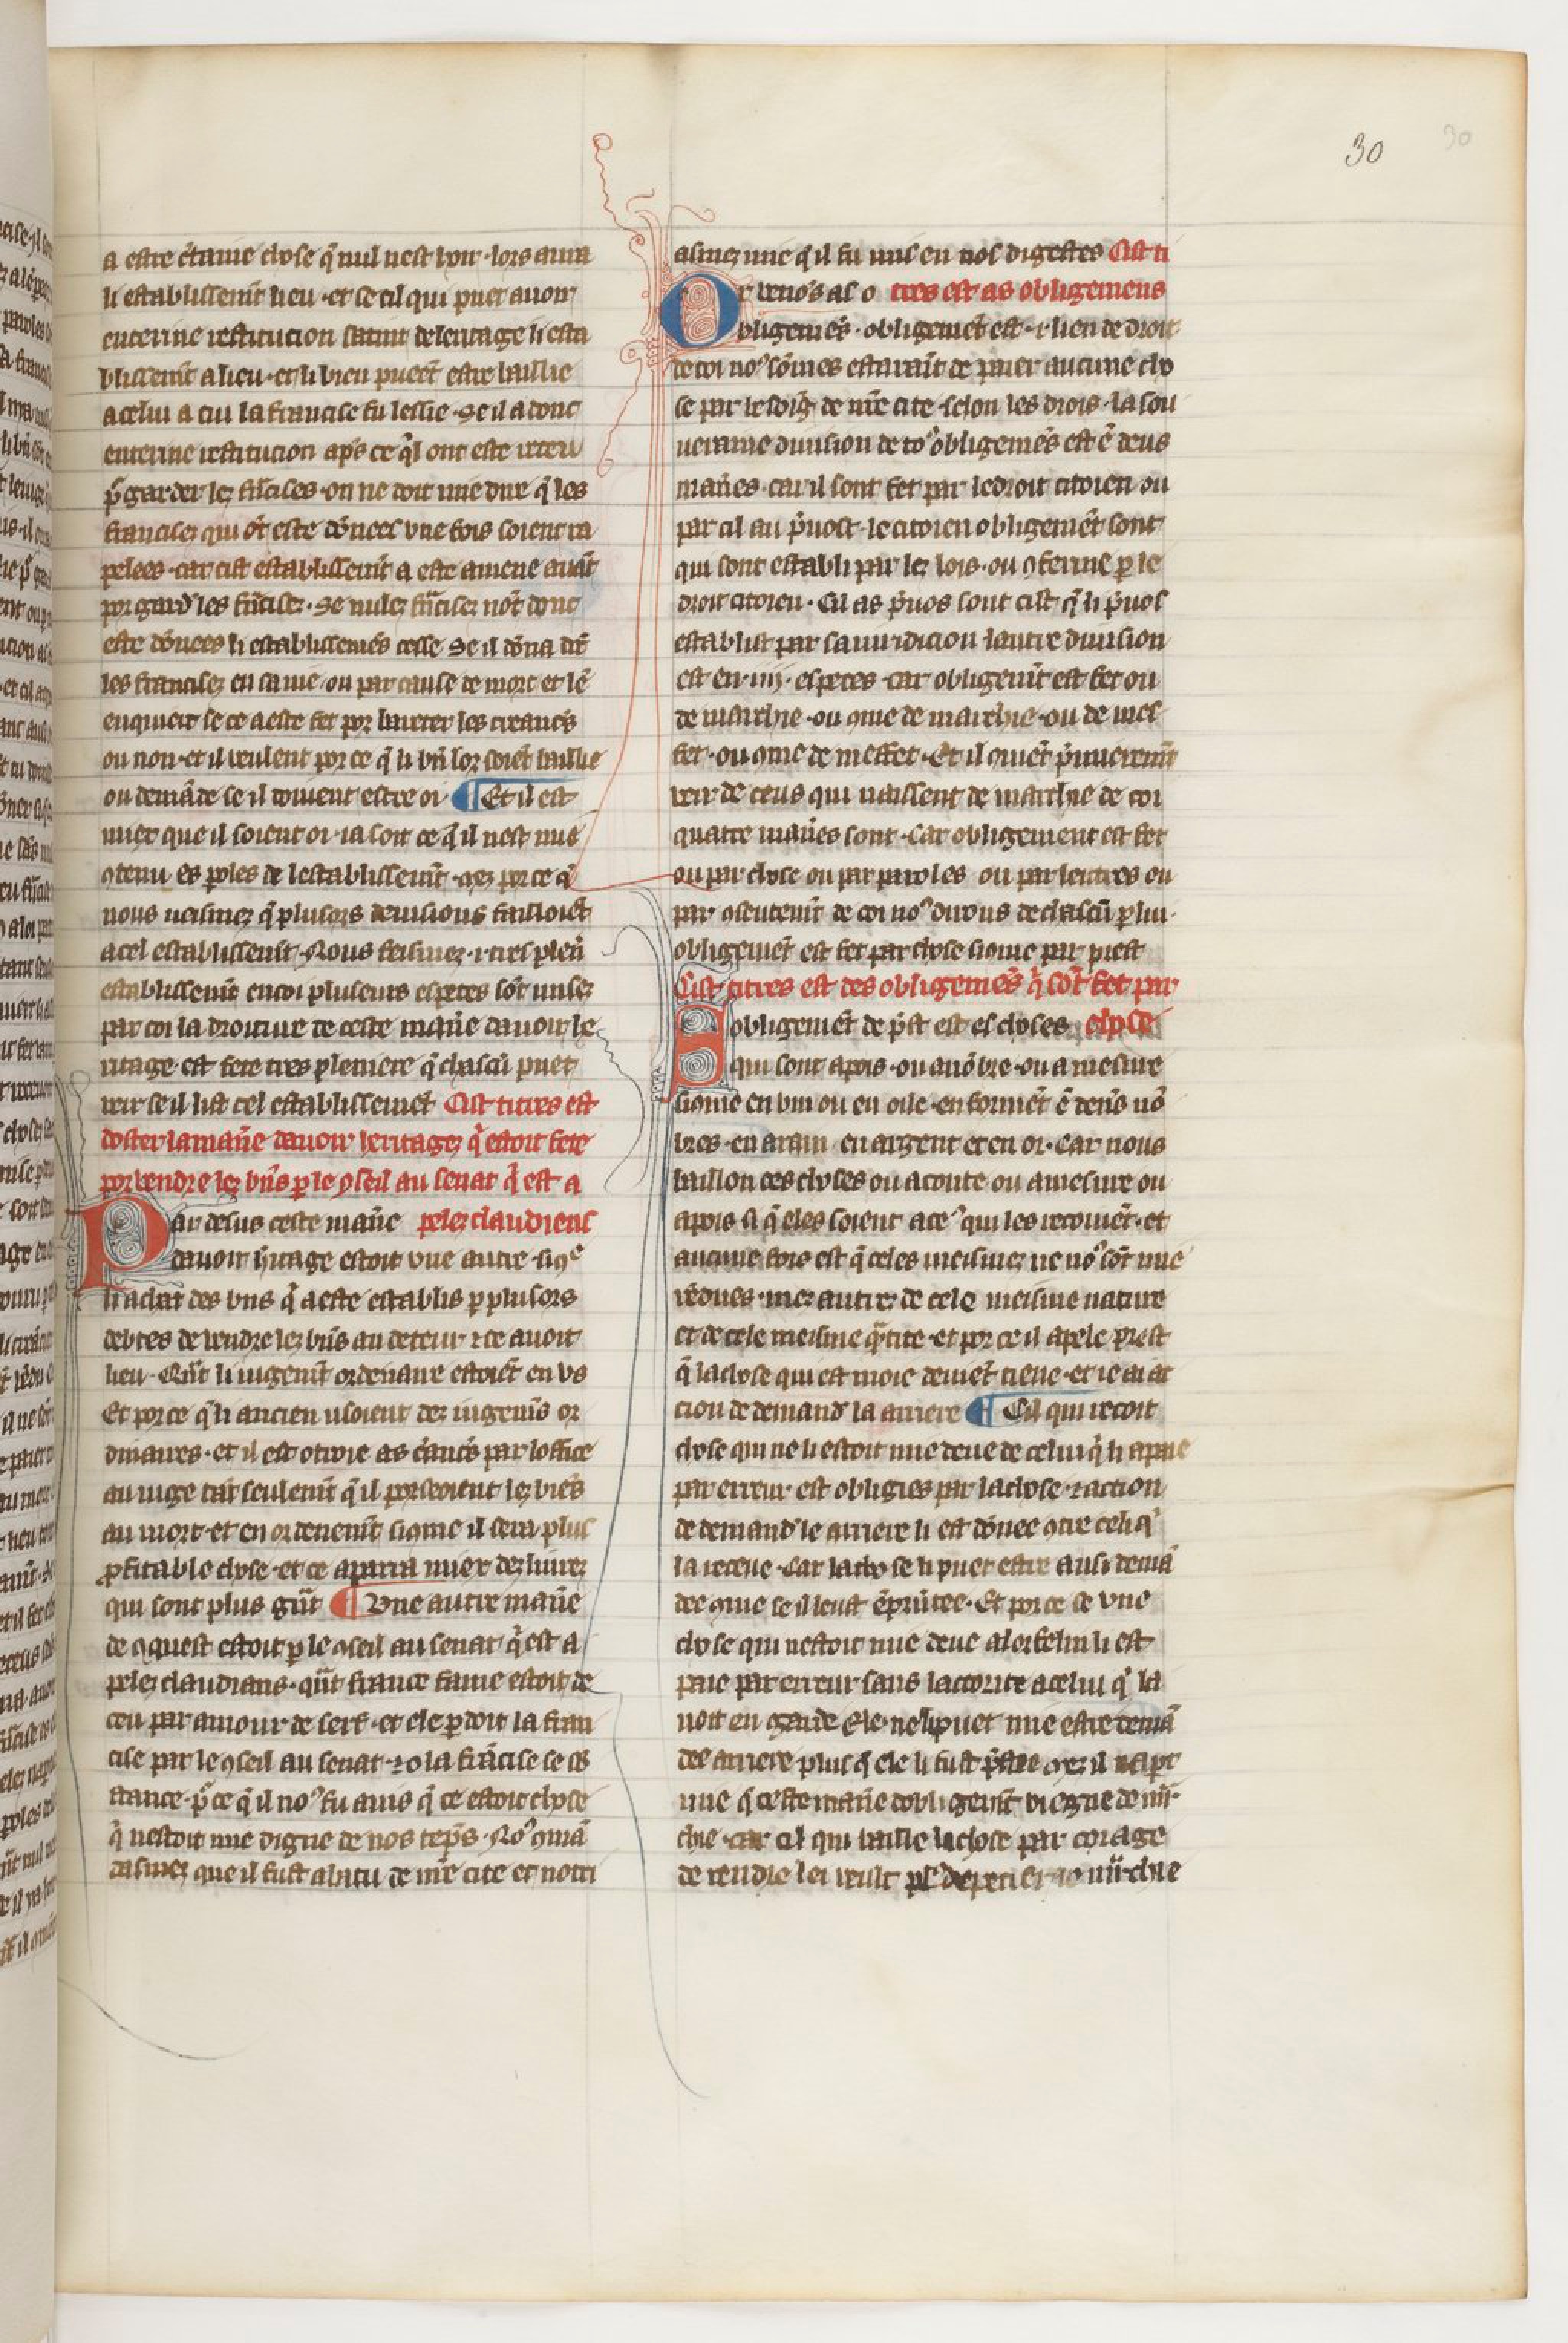 30
30
a estre c̾taine chose q̃ nul nest hoir · lors aura
li establissem̃t lieu · et se cil qui puet auoir
enterine restitucion satint de leritage li esta
blissem̃t a lieu · et li bien pueẽt estre baillie
a celui a cui la francise fu lessie · Se il a donc
enterine restitucion ap̃s ce q̃l ont este receu
p̃ garder lez frãcises · on ne doit mie dire q̃ les
francisez qui õt este dõnees vne fois soient ra
pelees · car cist establissem̃t a este amene auãt
por gard̾ les frãcisez · Se nulez frãcisez nõt donc
este dõnees li establissemẽs cesse Se il dõna dõ
les francisez en sa uie · ou par cause de mort et lẽ
enquiert se ce a este fet por bareter les creancĩs
ou non · et il veulent por ce q̃ li bñ lor soiẽt baillie
ou demãde se il doiuent estre oi ¶ Et il est
miex que il soient oi · ia soit ce q̃ il nest mie
ꝯtenu es ꝑoles de lestablissem̃t · mez por ce q̃
nous ueismez q̃ plusors deuisions failloiẽt
a cel establissem̃t · Nous feismez · i · tres pleñ
establissem̃t en coi pluseurs especes sõt misez
par coi la droiture de ceste mañe dauoir le
ritage est fete tres pleniere q̃ chascũ puet
veir se il list cel establissemẽt Cist titres est
doster la mañe dauoir heritagez q̃ estoit fete
por vendre lez bñs ꝑ le ꝯseil au senat q̃ est a
Par desus ceste mañe pelez claudiens
dauoir h̾itage estoit vne autre · siꝯe
li achat des bñs q̃ a este establis ꝑ plusors
debtes de vendre lez bñs au deteur · ⁊ ce auoit
lieu · Quãt li iugem̃t ordenaire estoiẽt en vs
Et por ce q̃ li ancien usoient dez iugem̃s or
dinaires · et il est otroie as c̾ancĩs par loffice
au iuge tãt seulem̃t q̃ il porseoient lez biẽs
au mort · et en ordenem̃t siꝯme il sera plus
ꝓfitable chose · et ce aparra miex dez liurez
qui sont plus grãt ¶ Vne autre mañe
de ꝯquest estoit ꝑ le ꝯseil au senat q̃ est a
pelez claudians · quãt france fame estoit de
ceu par amour de serf · et ele ꝑdoit la fran
cise par le ꝯseil au senat · ⁊ o la frãcise se sb
stance · p̃ ce q̃ il noꝰ fu auis q̃ ce estoit chose
q̃ nestoit mie digne de nos tẽps · Noꝰ ꝯmã
dasmez que il fust abatu de ñre cite et nottr
asmez mie q̃ il fu mis en nos digestes Cist ti
Or venõs as o tres est as obligemens
bligemẽs · obligemẽt est · i · lien de droit
de coi noꝰ sõmes estraraĩt de paier aucune cho
se par le soig̃ de ñre cite · selon les drois · la sou
ueraine diuision de toꝰ obligemẽs est ẽ deus
mañes · car il sont fet par le droit citoien ou
par cil au p̃uost · le citoien obligemẽt sont
qui sont establi par lez lois · ou ꝯferme ꝑ le
droit citoien · Cil as p̃uos sont cist q̃ li p̃uos
establist par sa iuridicion lautre diuision
est en · iiij · especes · car obligem̃t est fet ou
de marchie · ou ꝯme de marchie · ou de mes
fet · ou ꝯme de meffet · Et il ꝯuiẽt p̃mierem̃t
veir de ceus qui naissent de marchie de coi
quatre mañes sont · Car obligement est fet
ou par chose ou par paroles ou par lettres ou
par ꝯsentem̃t de coi noꝰ dirons de chascũ ꝑ lui ·
obligemẽt est fet par chose siꝯme par prest
Cist titres est des obligemẽs q̃ sõt fet par
Li obligemẽt de p̃st est es choses chose
qui sont a pois · ou a nõbre · ou a mesure
siꝯme en vin ou en oile · en formẽt ẽ denẽs nõ
bres · en arain en argent et en or · Car nous
baillon ces choses ou a conte ou a mesure ou
a pois si q̃ eles soient a ceꝰ qui les recoiuẽt · et
aucune fois est q̃ celes meismez ne noꝰ sõt mie
rẽdues · mez autrez de cele meisme nature
et de cele meisme q̃tite · et por ce il apele prest
q̃ la chose qui est moie deuiẽt tiene · et ie ai ac
cion de demand̾ la arriere ¶ Cil qui recoit
chose qui ne li estoit mie deue de celui q̃ li apaie
par erreur est obligies par la chose · ⁊ action
de demand̾ le arriere li est dõnee ꝯtre celi q̃
la receue · Car la chose li puet estre ausi demã
dee ꝯme se il leust ẽprũtee · Et por ce se vne
chose qui nestoit mie deue a lorfelin li est
paie par erreur sans lactorite a celui q̃ la
uoit en garde Ele ne li puet mie estre demã
dee arriere plus q̃ ele li fust p̃stee mez il nap̾t
mie q̃ ceste mañe dobligem̃t viegne de m̃r
chie · car cil qui baille la chose par corage
de rendre lei veult pl̾ depecier le m̃rchie